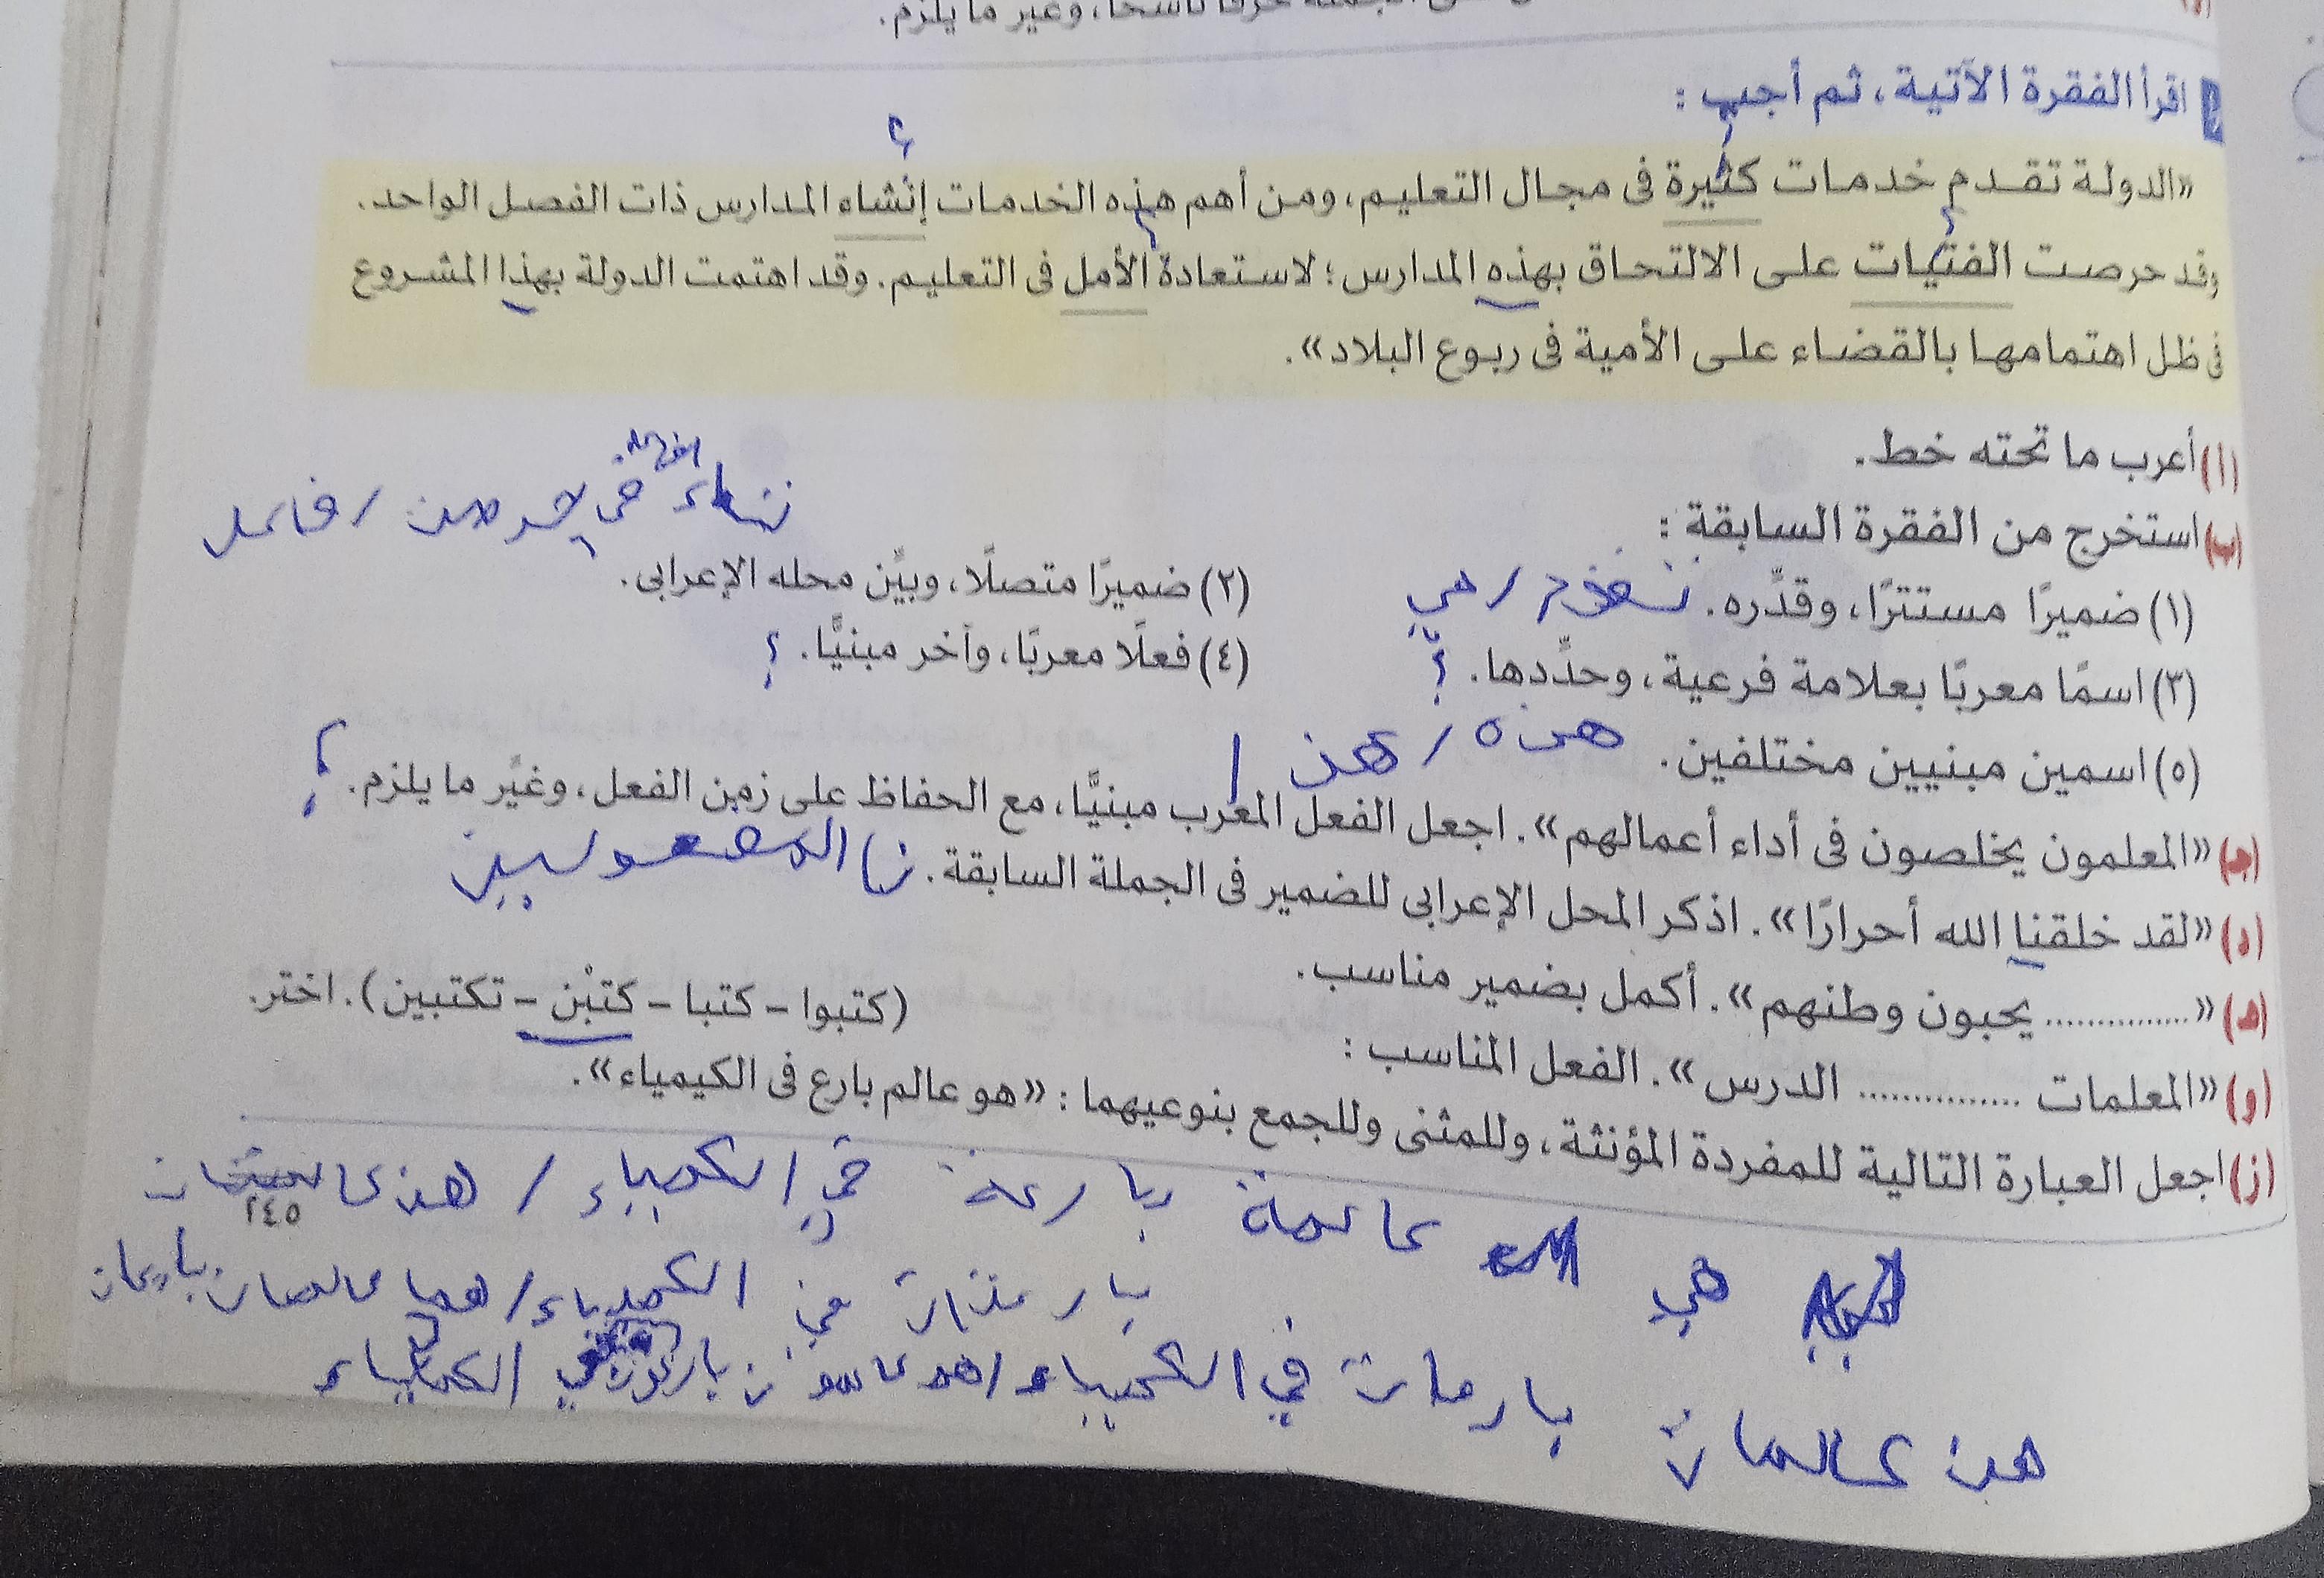 وغير ما يلزم.
اقرأ الفقرة الآتية، ثم أجب :
«الدولة تقدم خدمات كثيرة فى مجال التعليم، ومن أهم هذه الخدمات إنشاء المدارس ذات الفصل الواحد.
وقد حرصت الفتيات على الالتحاق بهذه المدارس؛ لاستعادة الأمل فى التعليم. وقد اهتمت الدولة بهذا المشروع
فى ظل اهتمامها بالقضاء على الأمية فى ربوع البلاد».
(أ) أعرب ما تحته خط.
(ب) استخرج من الفقرة السابقة :
(١) ضميرًا مستترًا، وقدِّره. / هي
(٢) ضميرًا متصلًا، وبيِّن محله الإعرابى. / فاعل
(٣) اسمًا معربًا بعلامة فرعية، وحدِّدها. ؟
(٤) فعلًا معربًا، وآخر مبنيًّا. ؟
(٥) اسمين مبنيين مختلفين. هذه /
(جـ) «المعلمون يخلصون فى أداء أعمالهم». اجعل الفعل المعرب مبنيًّا، مع الحفاظ على زمن الفعل، وغيِّر ما يلزم. ؟
(د) «لقد خلقنا الله أحرارًا». اذكر المحل الإعرابى للضمير فى الجملة السابقة.
(هـ) «............... يحبون وطنهم». أكمل بضمير مناسب.
(و) «المعلمات ............... الدرس». الفعل المناسب : (كتبوا – كتبا – كتبْن – تكتبين). اختر.
(ز) اجعل العبارة التالية للمفردة المؤنثة، وللمثنى وللجمع بنوعيهما : «هو عالم بارع فى الكيمياء».
هي عالمة بارعة في الكيمياء /
٢٤٥
في الكيمياء / هما عالمان بارعان
هن عالمات بارعات في الكيمياء / في الكيمياء